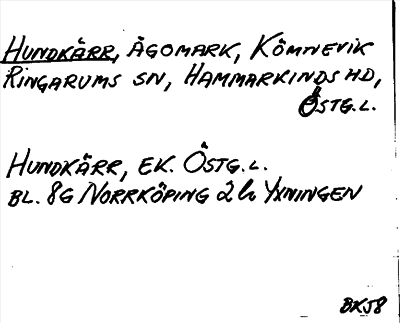 HUNDKÄRR, ÄGOMARK, KÖMNEVIK
RINGARUMS SN, HAMMARKINDS HD,
ÖSTG.L.
HUNDKÄRR, EK. ÖSTG.L.
BL. 8G NORRKÖPING 2h YXNINGEN
BKJ8